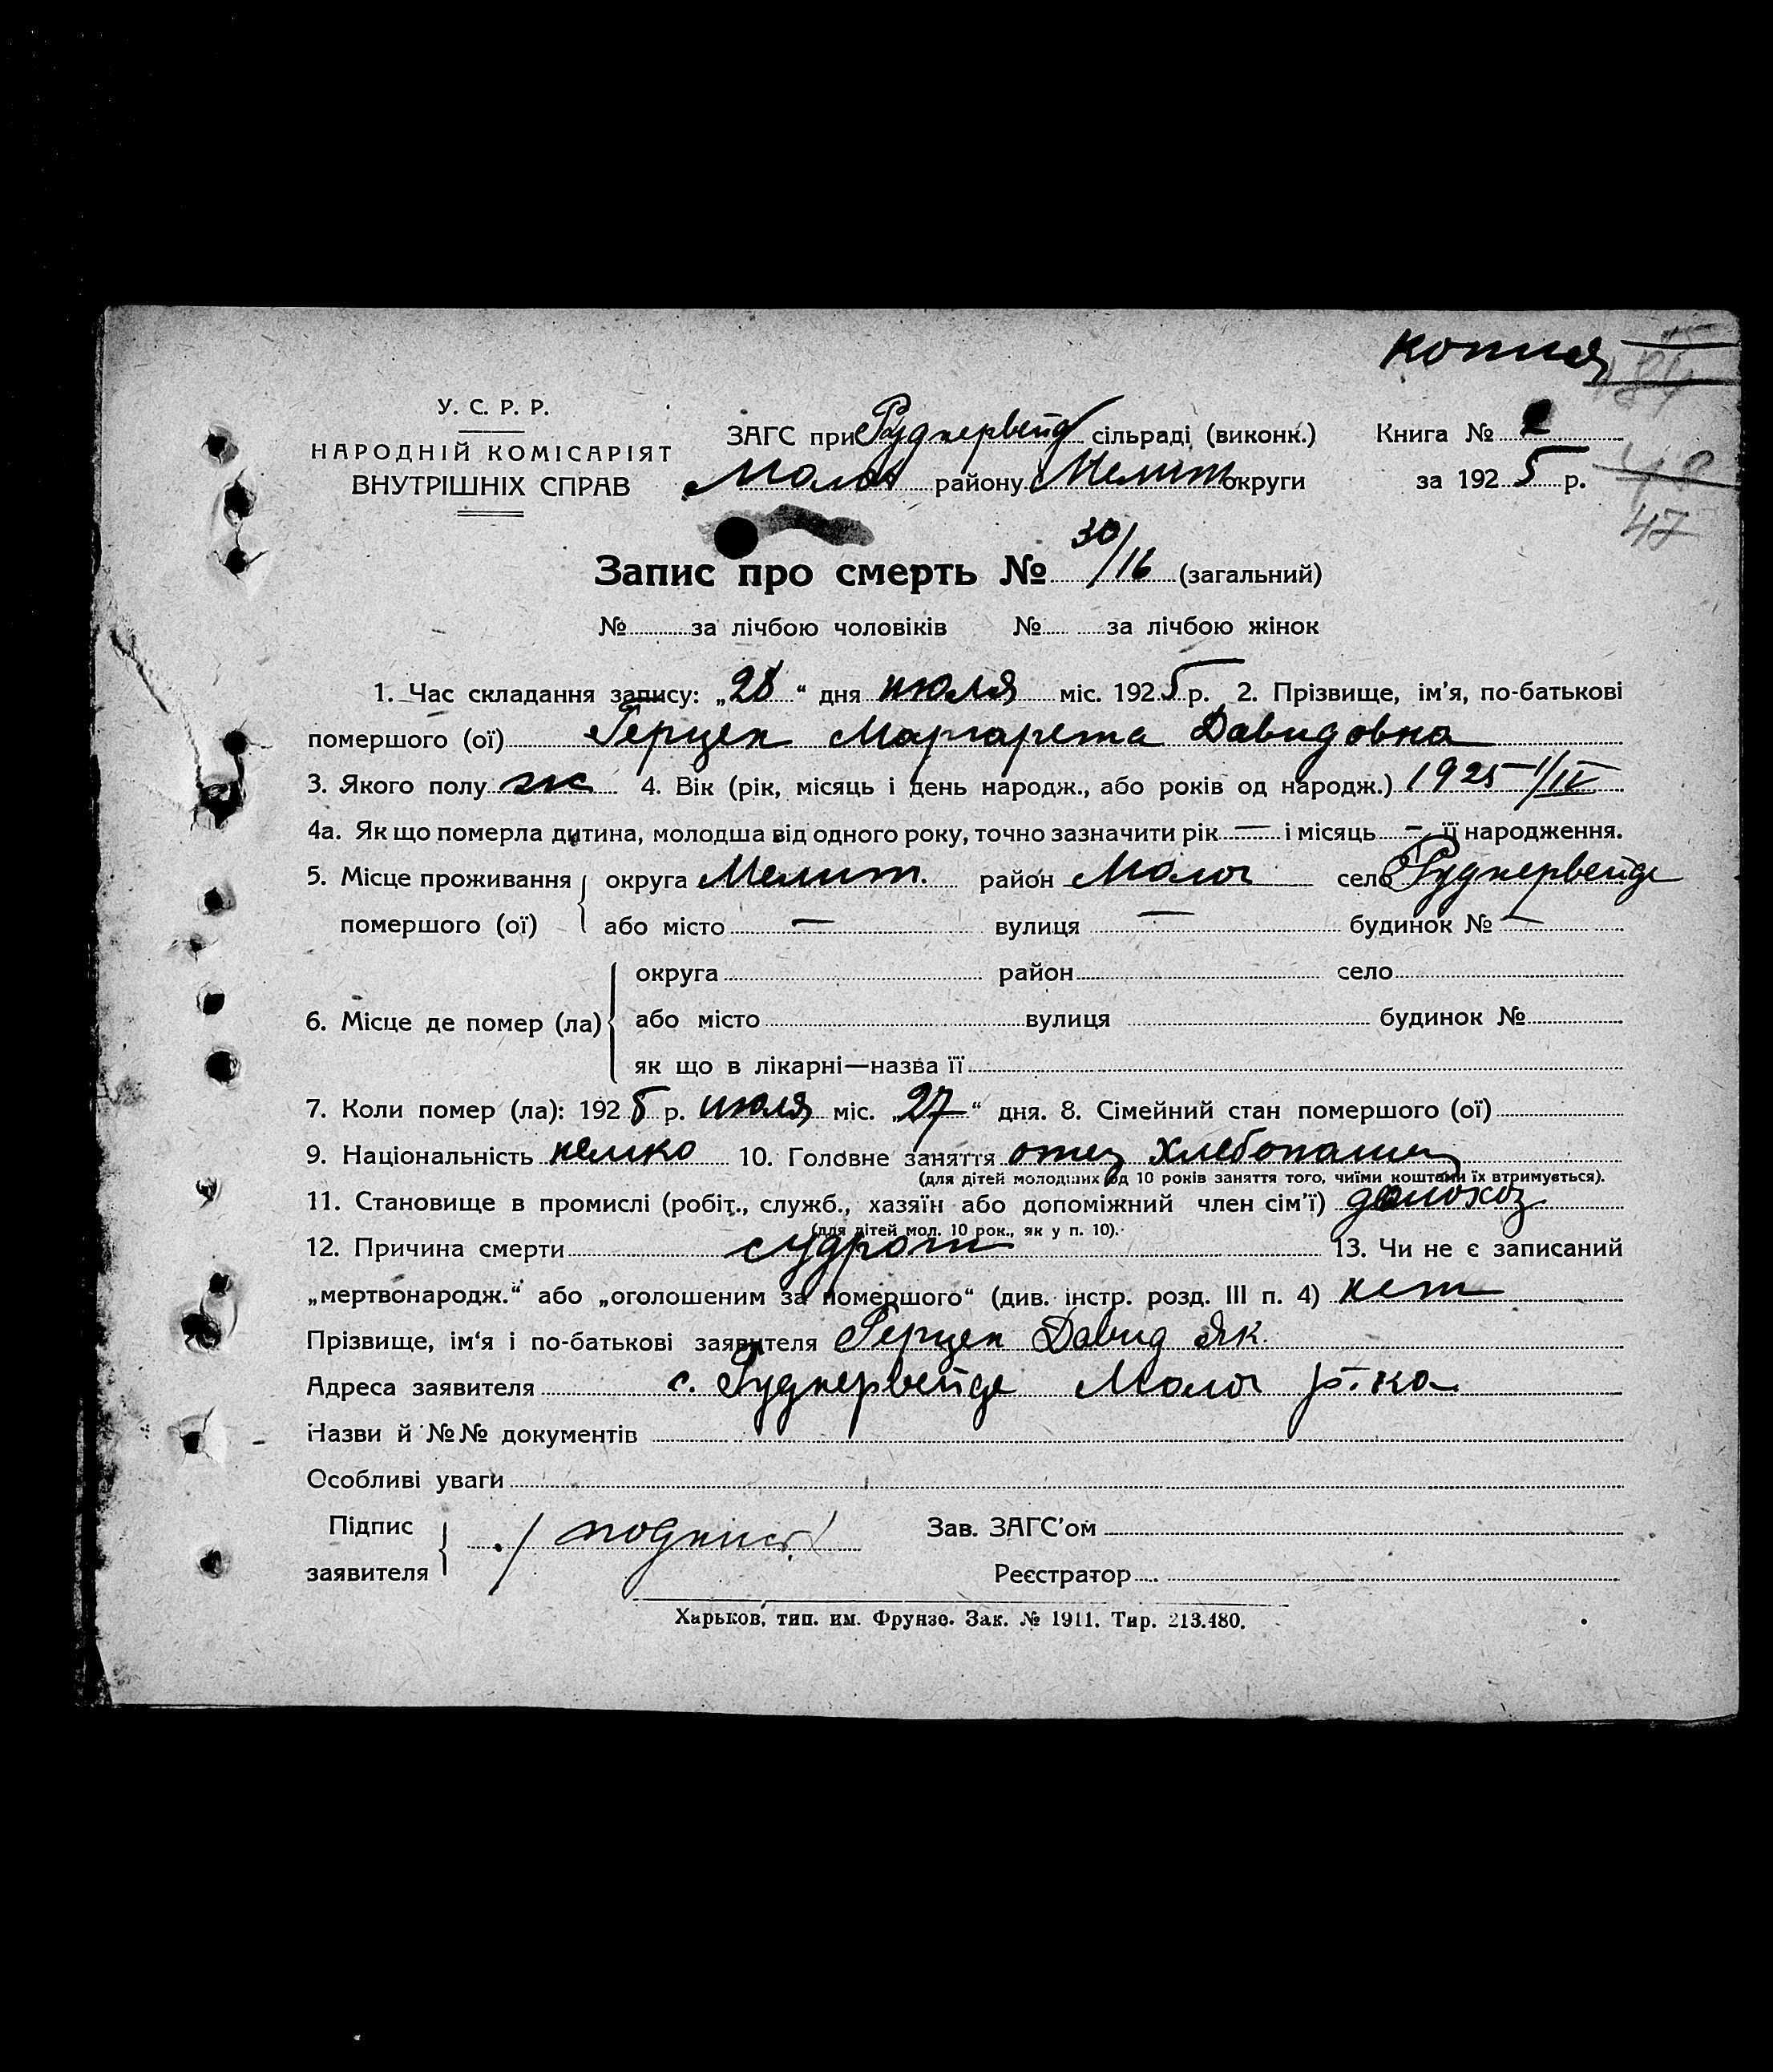 копия
У. С. Р. Р.
НАРОДНІЙ КОМІСАРІЯТ
ВНУТРІШНІХ СПРАВ
ЗАГС при Руднервейд сільраді (виконк.) Книга № 2
Молоч району Мелит округи за 1925 р.
47
Запис про смерть № 30/16 (загальний)
№ за лічбою чоловіків № за лічбою жінок
1. Час складання запису: „28“ дня июля міс. 1925 р. 2. Прізвище, ім'я, по-батькові
помершого (ої) Герцен Маргарета Давидовна
3. Якого полу ж 4. Вік (рік, місяць і день народж., або років од народж.) 1925 1/IV
4а. Як що померла дитина, молодша від одного року, точно зазначити рік — і місяць — її народження.
5. Місце проживання помершого (ої) округа Мелит. район Молоч село Руднервейде
або місто — вулиця — будинок № —
6. Місце де помер (ла) округа район село
або місто вулиця будинок №
як що в лікарні—назва її
7. Коли помер (ла): 1925 р. июля міс. „27“ дня. 8. Сімейний стан помершого (ої)
9. Національність немка 10. Головне заняття отец хлебопашец
(для дітей молодших од 10 років заняття того, чиїми коштами їх втримується).
11. Становище в промислі (робіт., служб., хазяїн або допоміжний член сім'ї) домохоз
(для дітей мол. 10 рок., як у п. 10).
12. Причина смерти судрот 13. Чи не є записаний
„мертвонародж.“ або „оголошеним за помершого“ (див. інстр. розд. III п. 4) нет
Прізвище, ім'я і по-батькові заявителя Герцен Давид Як.
Адреса заявителя с. Руднервейде Молоч р-на
Назви й №№ документів
Особливі уваги
Підпис заявителя / подпись / Зав. ЗАГС'ом
Реєстратор
Харьков, тип. им. Фрунзе. Зак. № 1911. Тир. 213.480.